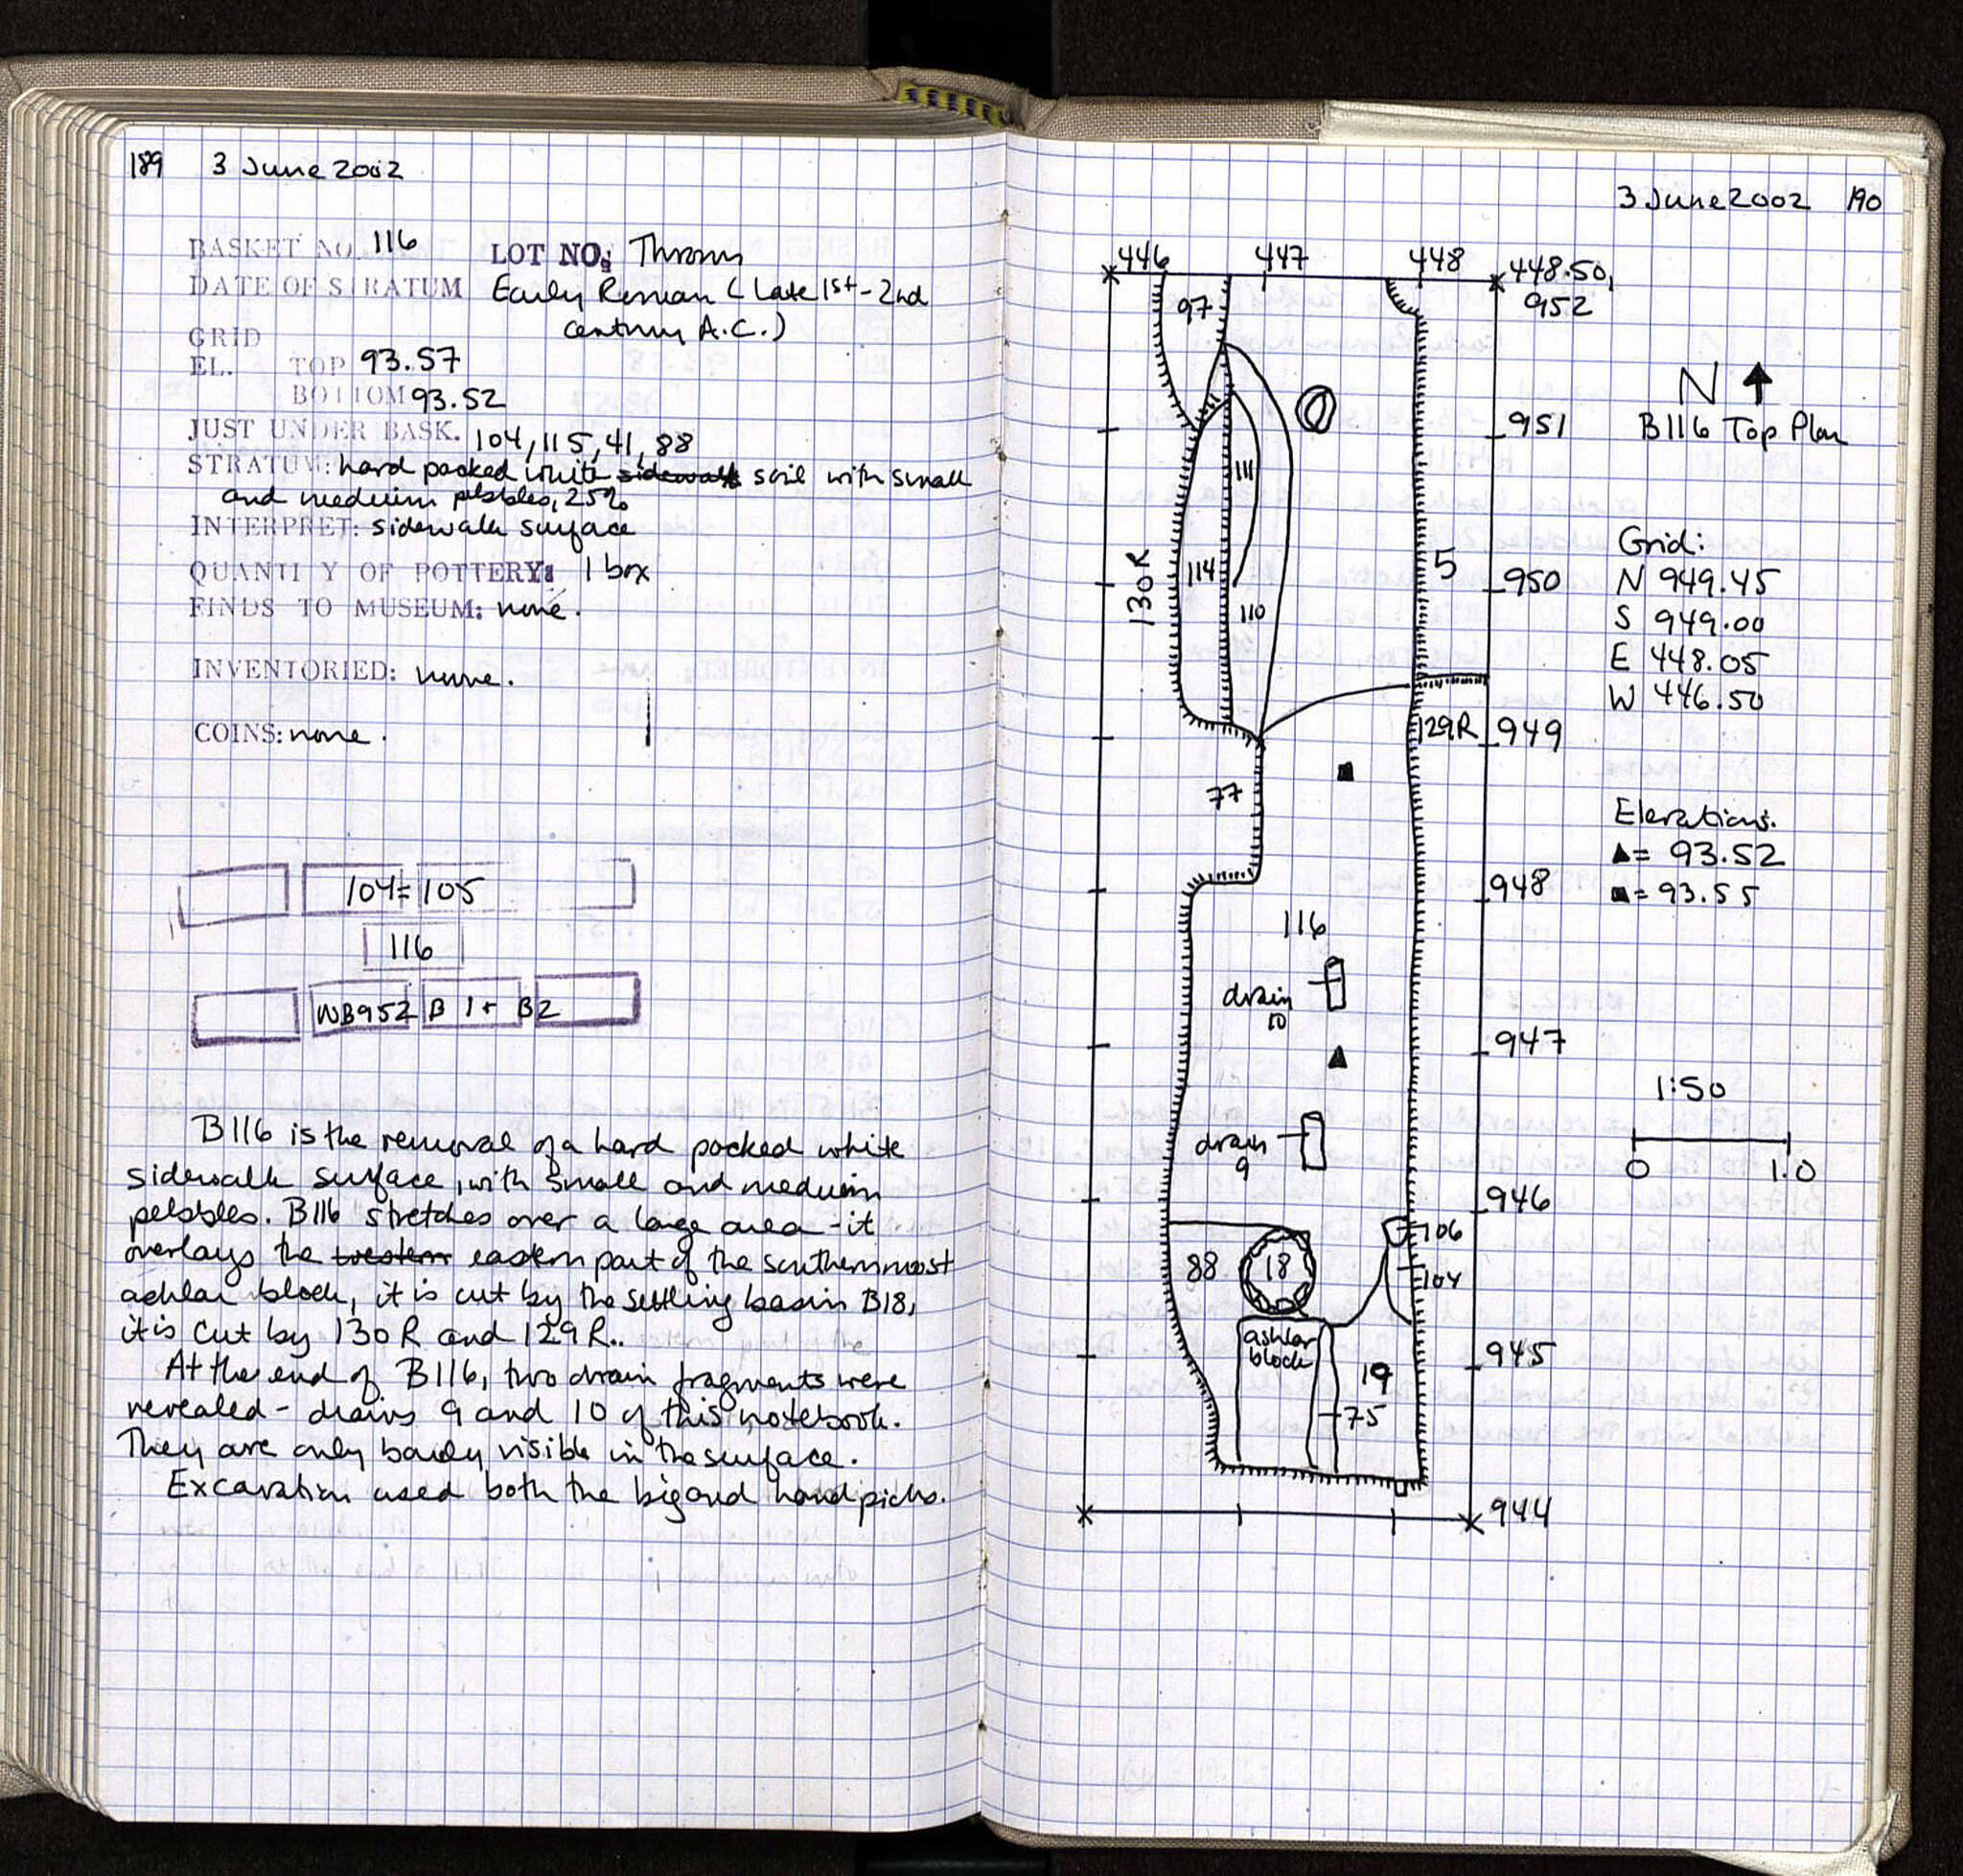 189 3 June 2002
BASKET NO. 116 LOT NO: Thrown
DATE OF STRATUM Early Roman (Late 1st-2nd
century A.C.)
GRID
EL. TOP 93.57
BOTTOM 93.52
JUST UNDER BASK. 104, 115, 41, 88
STRATUM: hard packed white sidewalk soil with small
and medium pebbles, 25%
INTERPRET: sidewalk surface
QUANTI Y OF POTTERY: 1 box
FINDS TO MUSEUM: none.
INVENTORIED: none.
COINS: none.
104=105
116
NB952 B 1+ B2
B116 is the removal of a hard packed white
sidewalk surface, with small and medium
pebbles. B116 stretches over a large area - it
overlays the western eastern part of the southernmost
ashlar block, it is cut by the settling basin B18,
it is cut by 130R and 129R..
At the end of B116, two drain fragments were
revealed - drains 9 and 10 of this notebook.
They are only barely visible in the surface.
Excavation used both the big and hand picks.
3 June 2002 190
446 447 448 448.50,
952
97
N
951
B116 Top Plan
111
130R
114
110
5
950
Grid:
N 949.45
S 949.00
E 448.05
W 446.50
129R
949
77
Elevations.
▲= 93.52
■= 93.55
948
116
drain
10
947
1:50
0 1.0
drain
9
946
106
88
18
104
ashlar
block
945
19
75
944